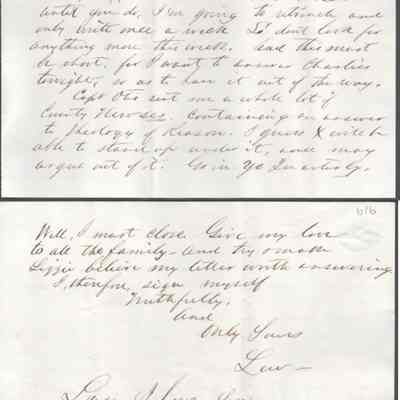 until you do, I'm going to retaliate and
only write once a week So don't look for
anything more this week. and this must
be short, for I want to answer Charlies
tonight, so as to have it out of the way.
Capt Otis sent me a whole lot of
County Newses. Containing an answer
to Theology of Reason. I guess X will be
able to stand up under it, and may
argue out of it. Go in Ye
616
Well, I must close. Give my love
to all the family - and try & make
Lizzie believe my letter worth answering
I, therefore, sign myself
Truthfully,
And
Only Yours
Lew -